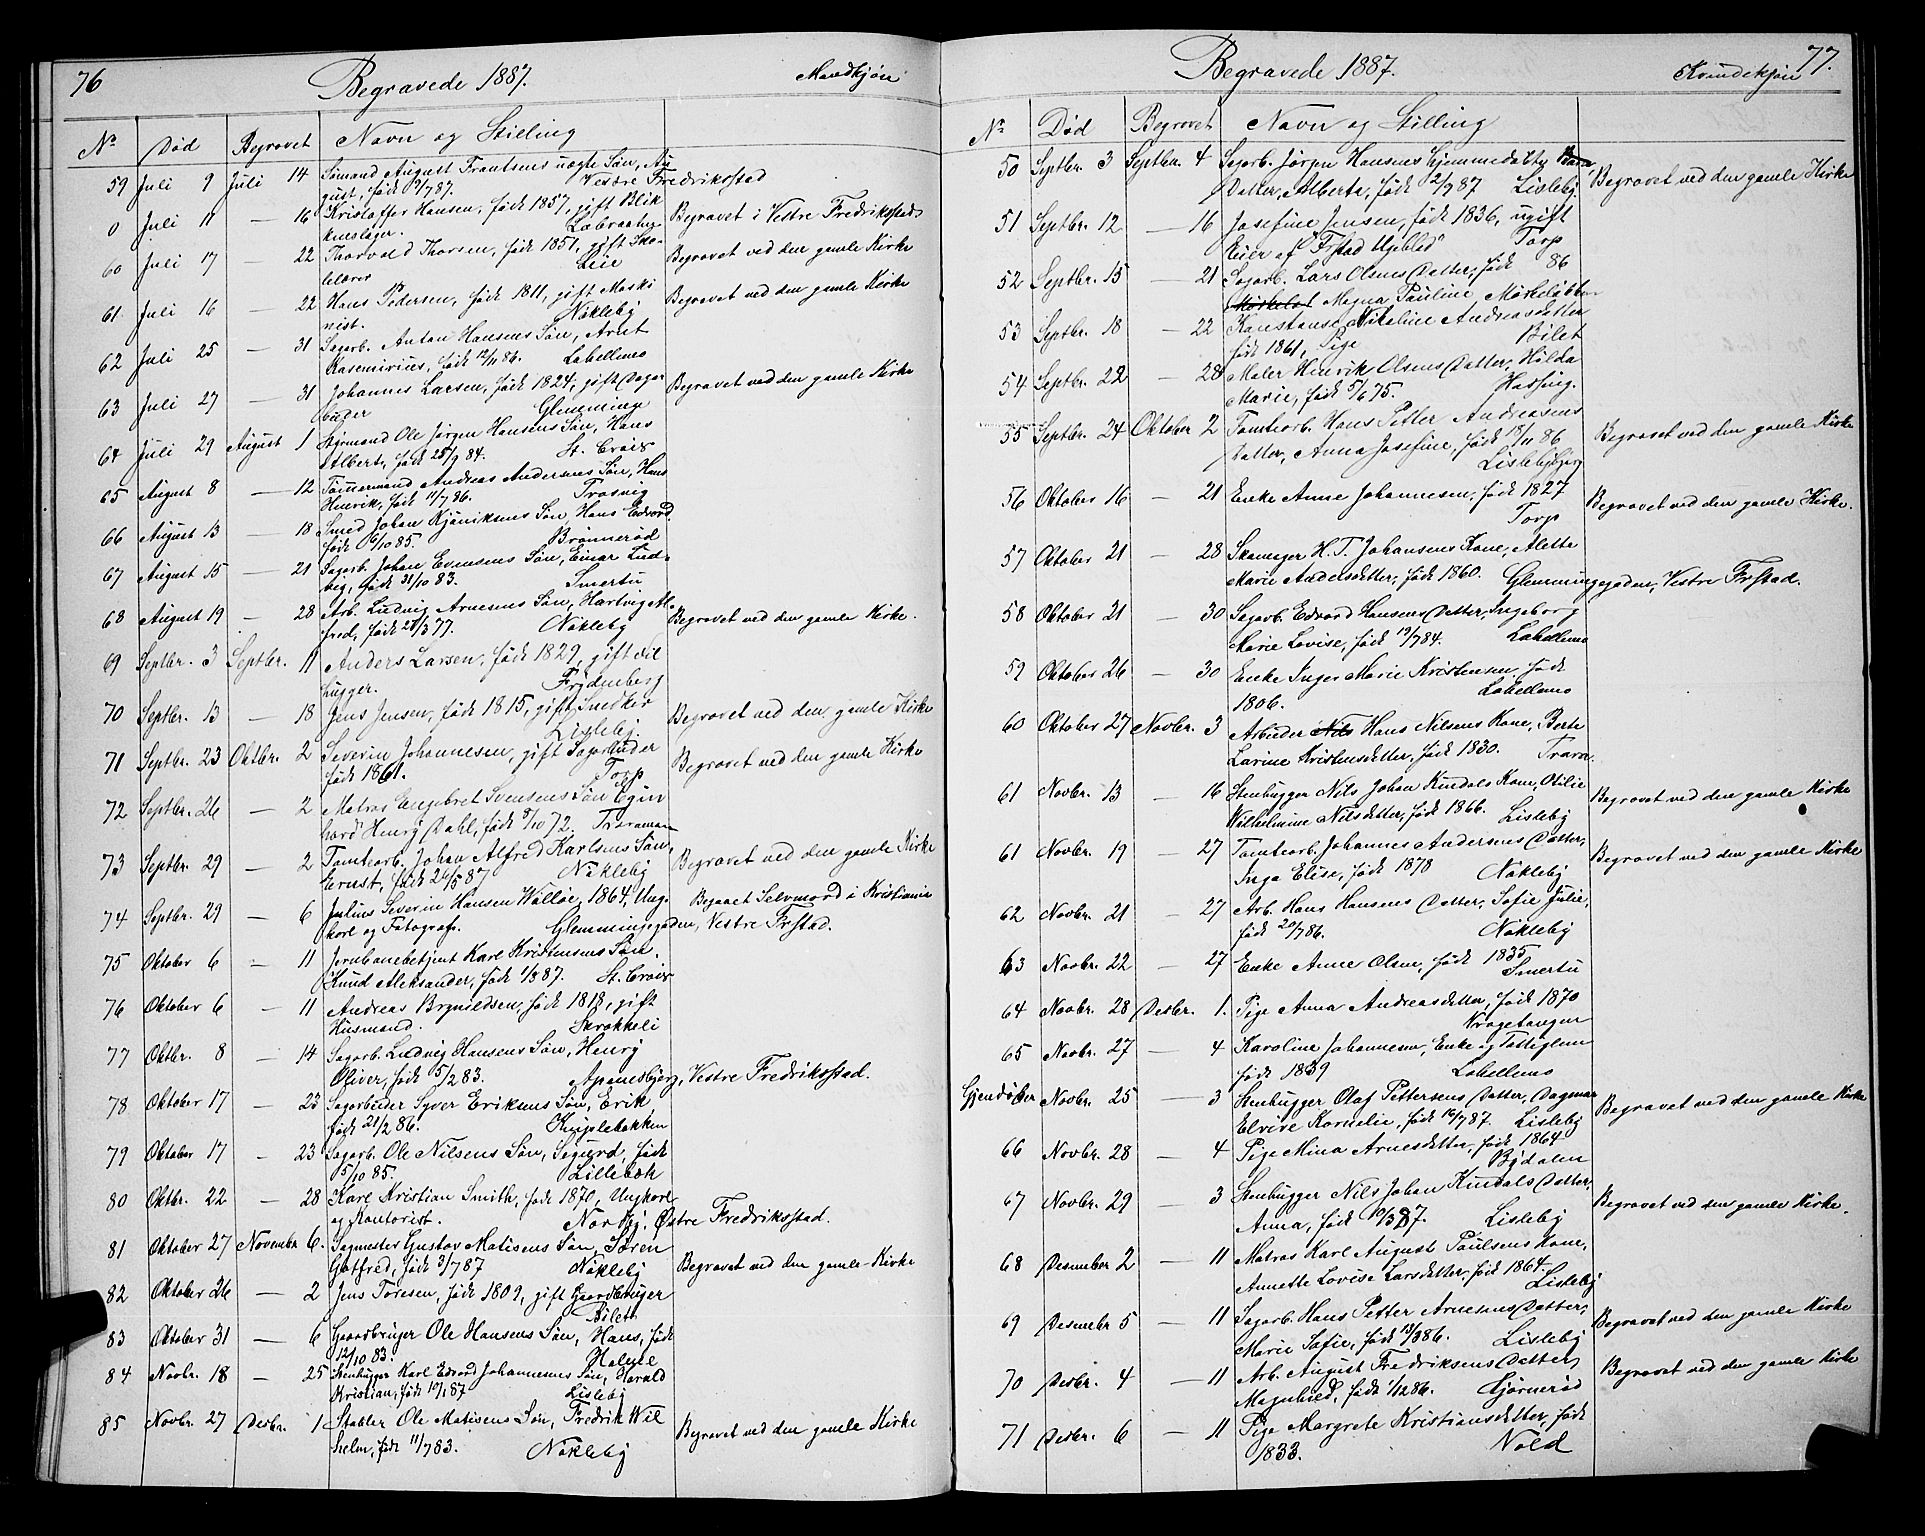 76 Begravede 1887. Mandkjøn
No Død Begravet Navn og Stilling
59 Juli 9 Juli 14 Simand August Frantsens uægte Søn, Au
gust, født 9/7 87. Vestre Fredriksstad
0 Juli 11 — 16 Kristoffer Hansen, født 1857, gift Blik
kenslager. Begravet i Vestre Fredriksstad
60 Juli 17 — 22 Thorvald Thorsen, født 1851, gift Sko
lelærer Leie Begravet ved den gamle Kirke
61 Juli 16 — 22 Hans Pedersen, født 1811, gift Maski
nist. Nøkleby Begravet ved den gamle Kirke
62 Juli 25 — 31 Sagarb. Anton Hansens Søn, Arnt
Kasemirius, født 12/11 86. Labellmo
63 Juli 27 — 31 Johannes Larsen, født 1824, gift Sagar
beider Glemminge Begravet ved den gamle Kirke
64 Juli 29 August 1 Styrmand Ole Jørgen Hansens Søn, Hans
Albert, født 25/9 84. St. Croix
65 August 8 — 12 Tømmermand Andreas Andersens Søn, Hans
Henrik, født 11/7 86. Trosvig
66 August 13 — 18 Smed Johan Kjøniksens Søn, Hans Edvard
født 6/10 85. Brønnerød
67 August 15 — 21 Sagarb. Johan Evensens Søn, Einar Lud-
vig, født 31/10 83. Smertu
68 August 19 — 28 Arb. Ludvig Arnesens Søn, Hartvig Al
fred, født 28/3 77. Nøkleby Begravet ved den gamle Kirke.
69 Septbr. 3 Septbr. 11 Anders Larsen, født 1829, gift Fil
hugger. Frydenberg
70 Septbr. 13 — 18 Jens Jensen, født 1815, gift Snedker
Lisleby. Begravet ved den gamle Kirke
71 Septbr. 23 Oktbr. 2 Severin Johannesen, gift Sagarbeider
født 1861. Torp Begravet ved den gamle Kirke
72 Septbr. 26 — 2 Matros Engebret Svensens Søn Egin
hard Henry Dahl, født 8/10 72. Traraman
73 Septbr. 29 — 2 Tomtearb. Johan Alfred Karlsens Søn,
Ernst, født 26/5 87 Nøkleby Begravet ved den gamle Kirke
74 Septbr. 29 — 6 Julius Severin Hansen Walløe, 1864, Ung-
karl og Fotograf. Glemmingegaden, Vestre Frstad. Begaaet Selvmord i Kristiania
75 Oktober 6 — 11 Jernbanebetjent Karl Kristensens Søn,
Knud Aleksander, født 1/8 87. St. Croix
76 Oktober 6 — 11 Andreas Brynildsen, født 1818, gift
Husmand. Skrokkeli
77 Oktbr. 8 — 14 Sagarb. Ludvig Hansens Søn, Henry
Oliver, født 5/2 83. Apenesbjerg, Vestre Fredriksstad.
78 Oktober 17 — 23 Sagarbeider Syver Eriksens Søn, Erik
født 21/2 86. Kniplebakken
79 Oktober 17 — 23 Sagarb. Ole Nilsens Søn, Sigurd, født
5/10 85. Lillebæk
80 Oktbr. 22 — 28 Karl Kristian Smith, født 1870, Ungkarl
og Kontorist. Norby, Østre Fredriksstad.
81 Oktober 27 November 6. Sagmester Gustav Matisens Søn, Søren
Gotfred, født 3/7 87 Nøkleby Begravet ved den gamle Kirke
82 Oktober 26 — 2 Jens Toresen, født 1809, gift Gaardbruger
Bilett
83 Oktober 31 — 6 Gaardbruger Ole Hansens Søn, Hans, født
12/10 83.
84 Novbr. 18 — 25 Stenhugger Karl Edvard Johannesens Søn, Harald
Kristian, født 10/1 87 Lisleby
85 Novbr. 27 Desbr. 1 Stabler Ole Matisens Søn, Fredrik Wil
helm, født 11/7 83. Nøkleby Begravet ved den gamle Kirke
Begravede 1887. Kvindekjøn 77.
No Død Begravet Navn og Stilling
50 Septbr. 3 Septbr. 4 Sagarb. Jørgen Hansens hjemmedøbte
Datter, Alberta, født 2/7 87 Lisleby. Begravet ved den gamle Kirke
51 Septbr. 12 — 16 Josefine Jensen, født 1836, ugift
Eier af "Frstad Ugeblad" Torp
52 Septbr. 15 — 21 Sagarb. Lars Olsens Datter, født 86
Magna Pauline,
53 Septbr. 18 — 22 Konstanse Nikoline Andreasdatter
født 1861, Pige Bilet
54 Septbr. 22 — 28 Maler Henrik Olsens Datter, Hilda
Marie, født 5/6 75. Hassing.
55 Septbr. 24 Oktober 2 Tomtearb. Hans Petter Andreasens
Datter, Anna Josefine, født 18/11 86
Lislebybjerg Begravet ved den gamle Kirke
56 Oktober 16 — 21 Enke Anne Johannesen, født 1827
Torp Begravet ved den gamle Kirke.
57 Oktober 21 — 28 Skomager H. T. Johansens Kone, Alette
Marie Andersdatter, født 1860. Glemmingegaden, Vestre Frstad.
58 Oktober 21 — 30 Sagarb. Edvard Hansens Datter, Ingeborg
Marie Lovise, født 19/7 84. Labellmo
59 Oktober 26 — 30 Enke Inger Marie Kristensen født
1806. Labellmo
60 Oktober 27 Novbr. 3 Arbeider Nils Hans Nilsens Kone, Berte
Larine Kristensdatter, født 1830. Trara.
61 Novbr. 13 — 16 Stenhugger Nils Johan Kindals Kone, Otilie
Wilhelmine Nilsdatter, født 1866. Lisleby Begravet ved den gamle Kirke
61 Novbr. 19 — 27 Tomtearb. Johannes Andersens Datter,
Inga Elise, født 1878 Nøkleby Begravet ved den gamle Kirke
62 Novbr. 21 — 27 Arb. Hans Hansens Datter, Sofie Julie,
født 20/7 86. Nøkleby
63 Novbr. 22 — 27 Enke Anne Olsen, født 1835
Smertu
64 Novbr. 28 Desbr. 1. Pige Anna Andreasdatter, født 1870
Kragetangen
65 Novbr. 27 — 4 Karoline Johannesen, Enke og Fattiglem
født 1839 Labellmo
Gjendøber Novbr. 25 — 3 Stenhugger Olaf Pettersens Datter, Dagmar
Elvire Kornelie, født 16/7 87. Lisleby Begravet ved den gamle Kirke
66 Novbr. 28 — 4 Pige Mina Arnesdatter, født 1864
Bydalen
67 Novbr. 29 — 3 Stenhugger Nils Johan Kindals Datter,
Anna, født 10/3 87. Lisleby Begravet ved den gamle Kirke.
68 Desember 2 — 11 Matros Karl August Paulsens Kone,
Annette Lovise Larsdatter, født 1864.
Lisleby
69 Desember 5 — 11 Sagarb. Hans Petter Arnesens Datter,
Marie Sofie, født 13/3 86. Lisleby Begravet ved den gamle Kirke
70 Desbr. 4 — 11 Arb. August Fredriksens Datter
Magnhild, født 1/12 86. Gjørnerød Begravet ved den gamle Kirke
71 Desbr. 6 — 11 Pige Margrete Kristiansdatter, født
1833. Nold